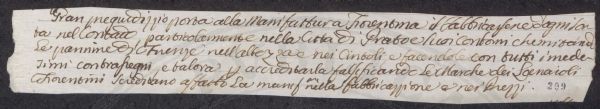 Gran pregiudizio porta alla Manifattura Fiorentina il fabbricarsene d'ogni sor
ta nel Contado particolarmente nella Città di Prato e suoi Contorni che imitando
le pannine di Firenze nell'altezza e nei Cimoli e facendole con tutti i mede
simi contrasegni e talora accreditarla falsificando le Marche dei Lanaioli
Fiorentini screditano affatto la manif.ra nella fabbricazione e nei prezzi.
299